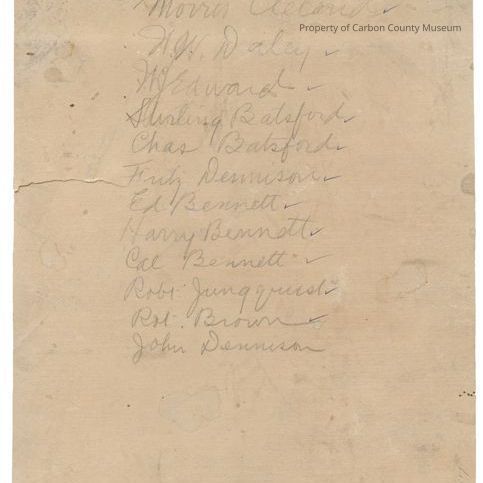 Morris
Property of Carbon County Museum
W.W. Daley ✓
Edward ✓
Batsford ✓
Chas Batsford ✓
Fritz Dennison ✓
Ed Bennett ✓
Harry Bennett ✓
Cal Bennett ✓
Robt Jungquist ✓
Rot. Brown ✓
John Dennison